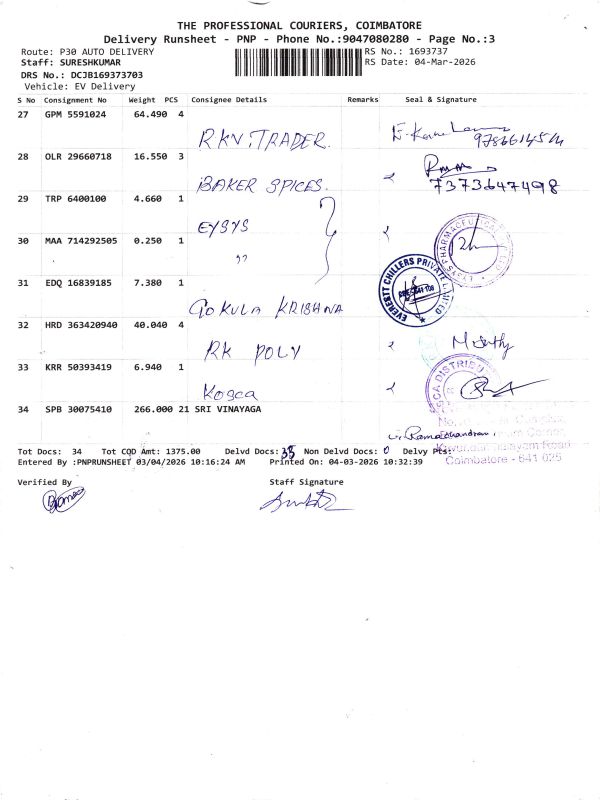 THE PROFESSIONAL COURIERS, COIMBATORE
Delivery Runsheet - PNP - Phone No.:9047080280 - Page No.:3
Route: P30 AUTO DELIVERY RS No.: 1693737
Staff: SURESHKUMAR RS Date: 04-Mar-2026
DRS No.: DCJB169373703
Vehicle: EV Delivery
S No Consignment No Weight PCS Consignee Details Remarks Seal & Signature
27 GPM 5591024 64.490 4 RKV. TRADER.
28 OLR 29660718 16.550 3 BAKER SPICES. 7373647498
29 TRP 6400100 4.660 1 EYSYS
30 MAA 714292505 0.250 1 "
EVERESTT CHILLERS PRIVATE LIMITED
31 EDQ 16839185 7.380 1 GOKULA KRISHNA
32 HRD 363420940 40.040 4 RK POLY
33 KRR 50393419 6.940 1 Kosca
34 SPB 30075410 266.000 21 SRI VINAYAGA
G. Ramachandran
Tot Docs: 34 Tot COD Amt: 1375.00 Delvd Docs: Non Delvd Docs: 0 Delvy Pts:
Entered By :PNPRUNSHEET 03/04/2026 10:16:24 AM Printed On: 04-03-2026 10:32:39
Coimbatore - 641 025
Verified By Staff Signature